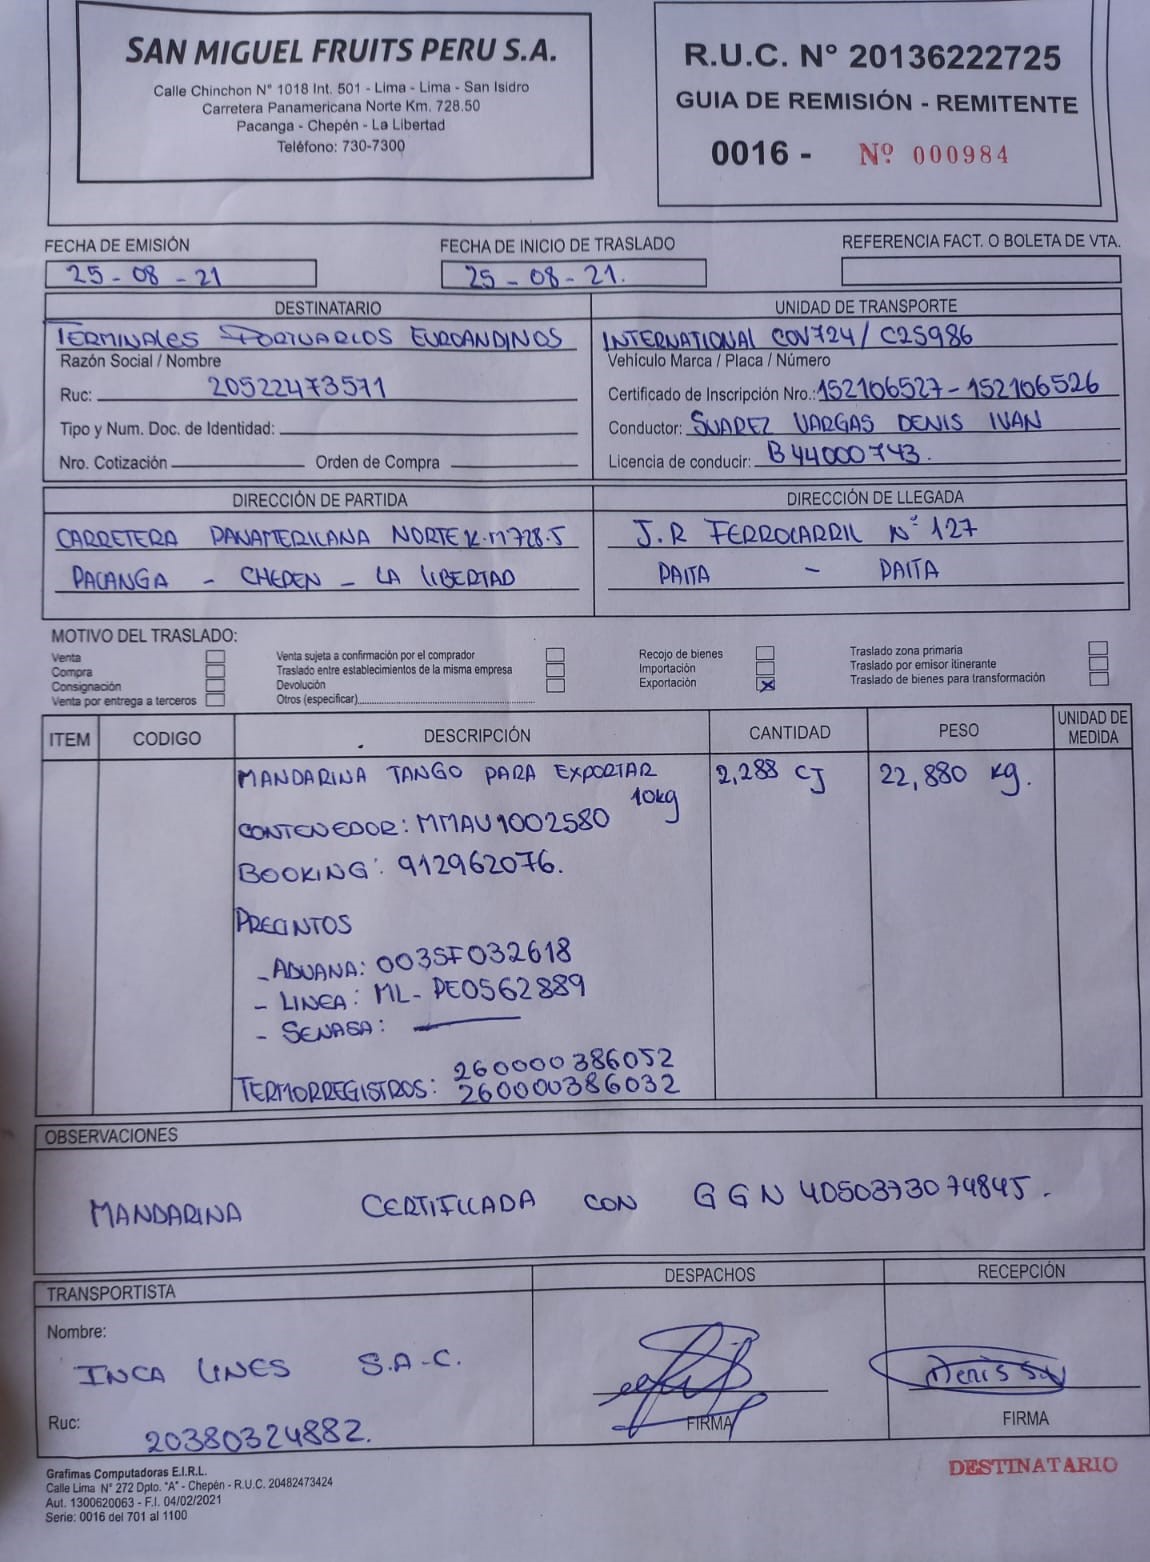 SAN MIGUEL FRUITS PERU S.A.
Calle Chinchon N° 1018 Int. 501 - Lima - Lima - San Isidro
Carretera Panamericana Norte Km. 728.50
Pacanga - Chepén - La Libertad
Teléfono: 730-7300
R.U.C. N° 20136222725
GUIA DE REMISIÓN - REMITENTE
0016 - Nº 000984
FECHA DE EMISIÓN
25-08-21
FECHA DE INICIO DE TRASLADO
25-08-21.
REFERENCIA FACT. O BOLETA DE VTA.
DESTINATARIO
TERMINALES PORTUARIOS EUROANDINOS
Razón Social / Nombre
Ruc: 20522473571
Tipo y Num. Doc. de Identidad:
Nro. Cotización Orden de Compra
UNIDAD DE TRANSPORTE
INTERNATIONAL COV724/C2S986
Vehículo Marca / Placa / Número
Certificado de Inscripción Nro.: 152106527-152106526
Conductor: SUAREZ VARGAS DENIS IVAN
Licencia de conducir: B44000743.
DIRECCIÓN DE PARTIDA
CARRETERA PANAMERICANA NORTE K.M 728.5
PACANGA - CHEPEN - LA LIBERTAD
DIRECCIÓN DE LLEGADA
J.R FERROCARRIL Nº 127
PAITA - PAITA
MOTIVO DEL TRASLADO:
Venta
Compra
Consignación
Venta por entrega a terceros
Venta sujeta a confirmación por el comprador
Traslado entre establecimientos de la misma empresa
Devolución
Otros (especificar)
Recojo de bienes
Importación
Exportación X
Traslado zona primaria
Traslado por emisor itinerante
Traslado de bienes para transformación
ITEM CODIGO DESCRIPCIÓN CANTIDAD PESO UNIDAD DE MEDIDA
MANDARINA TANGO PARA EXPORTAR 2,288 CJ 22,880 kg.
10kg
CONTENEDOR: MMAU1002580
BOOKING: 912962076.
PRECINTOS
- ADUANA: 003SF032618
- LINEA: ML-PE0562889
- SENASA:
260000386052
TERMORREGISTROS: 260000386032
OBSERVACIONES
MANDARINA CERTIFICADA CON GGN 4050373074845.
TRANSPORTISTA
Nombre:
INCA LINES S.A.C.
Ruc:
20380324882.
DESPACHOS
FIRMA
RECEPCIÓN
FIRMA
Grafimas Computadoras E.I.R.L.
Calle Lima N° 272 Dpto. "A" - Chepén - R.U.C. 20482473424
Aut. 1300620063 - F.I. 04/02/2021
Serie: 0016 del 701 al 1100
DESTINATARIO